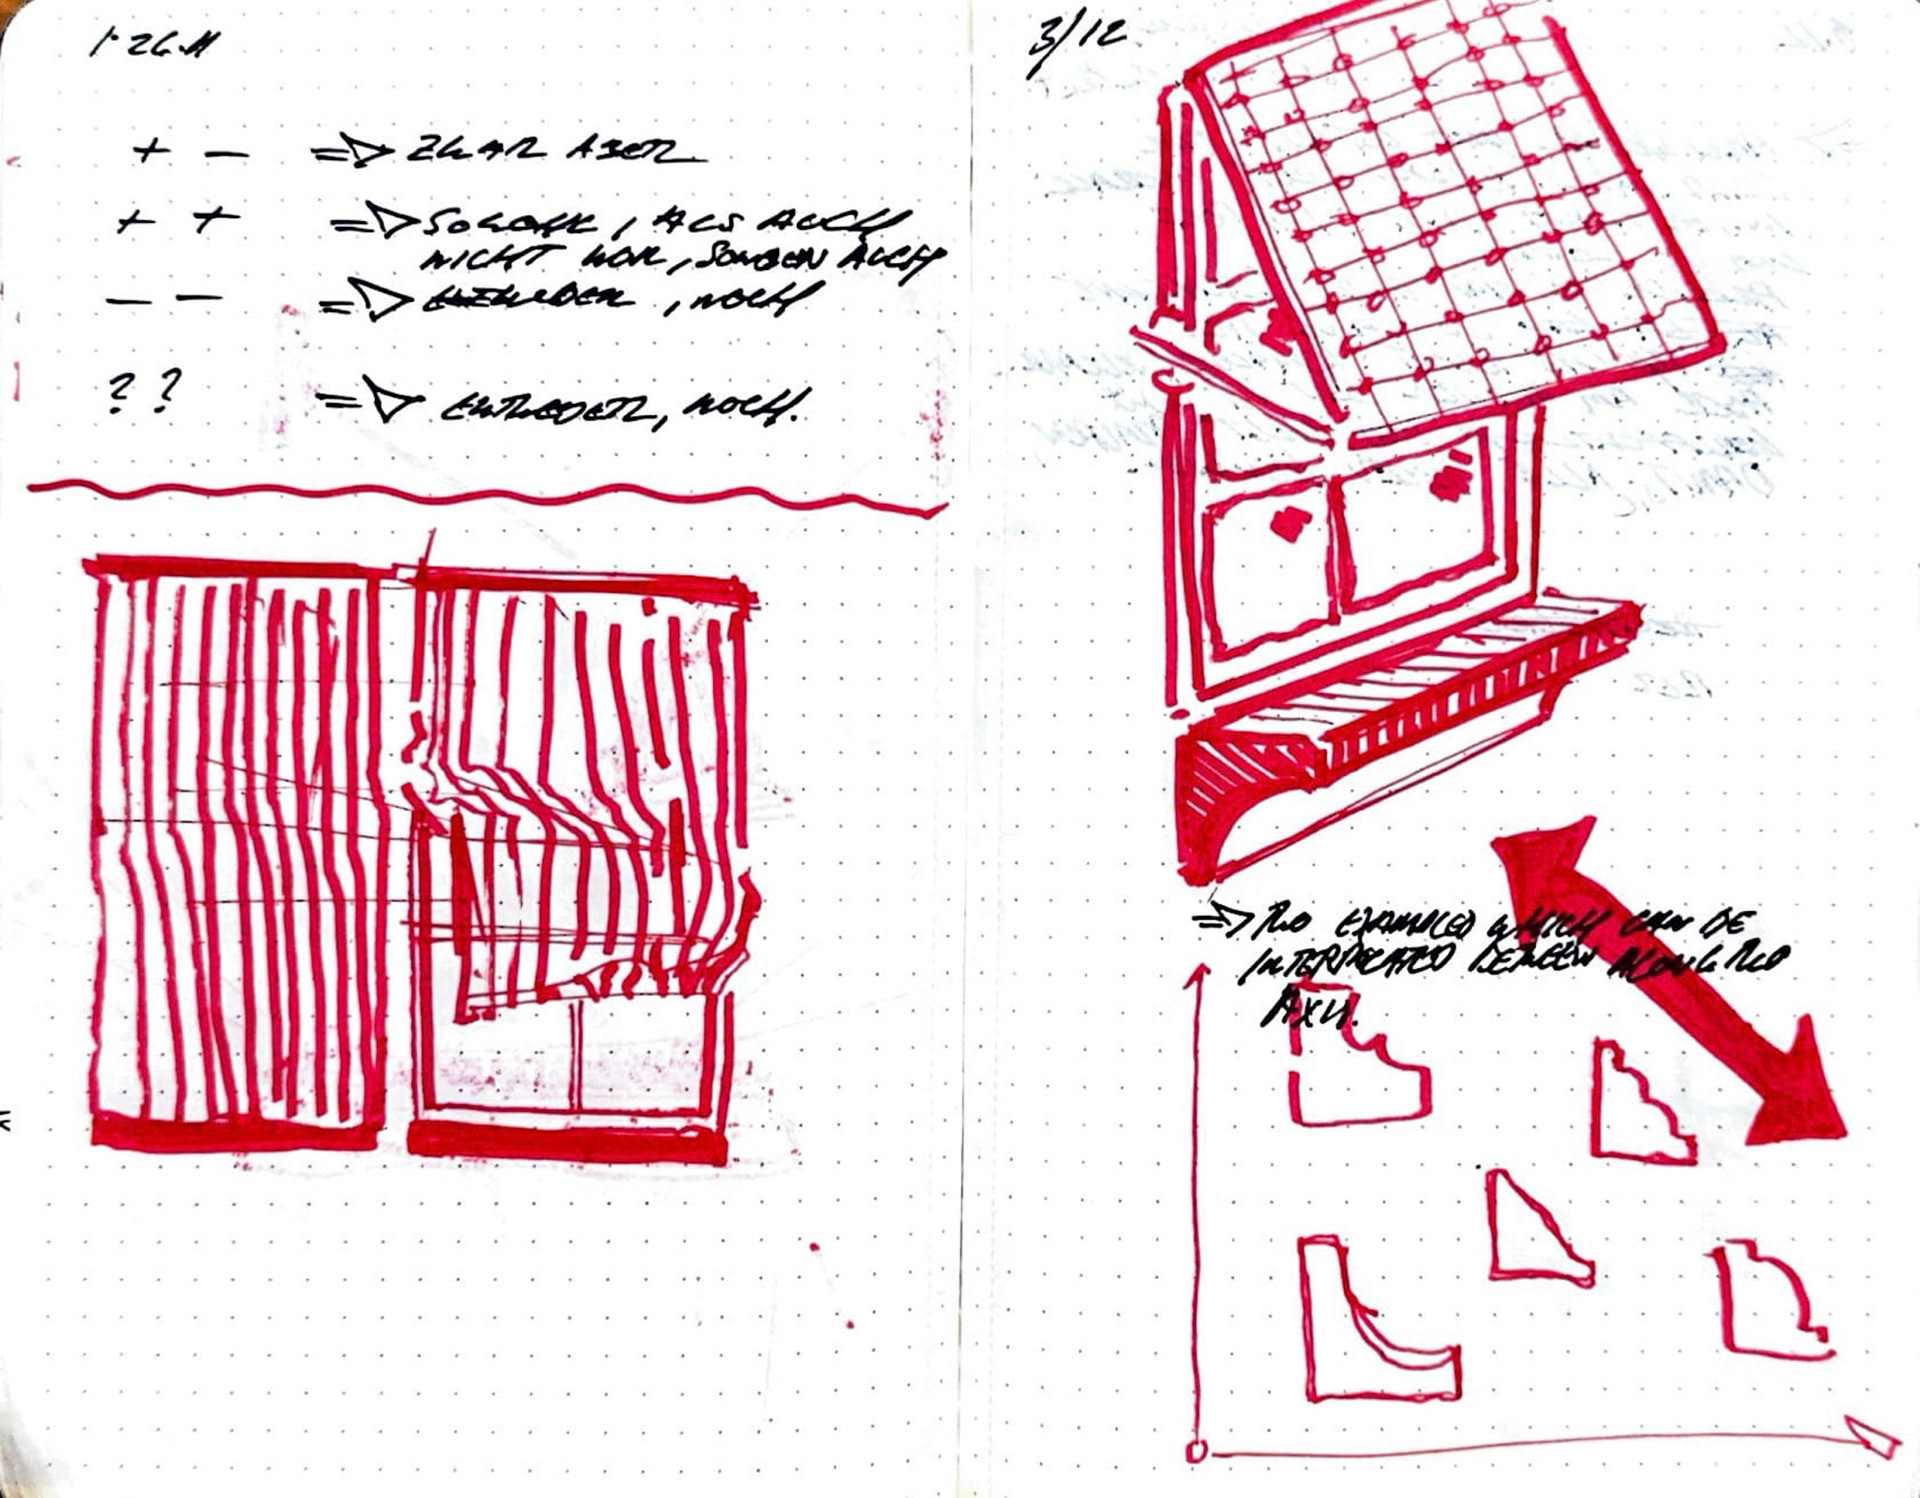 1·26.11
+ – => ZWAR ABER
+ + => SOWOHL, ALS AUCH
NICHT NUR, SONDERN AUCH
– – => , NOCH
? ? => ENTWEDER, NOCH.
3/12
=> TWO EXAMPLES WHICH CAN BE
INTERPOLATED BETWEEN ALONG TWO
AXIS.